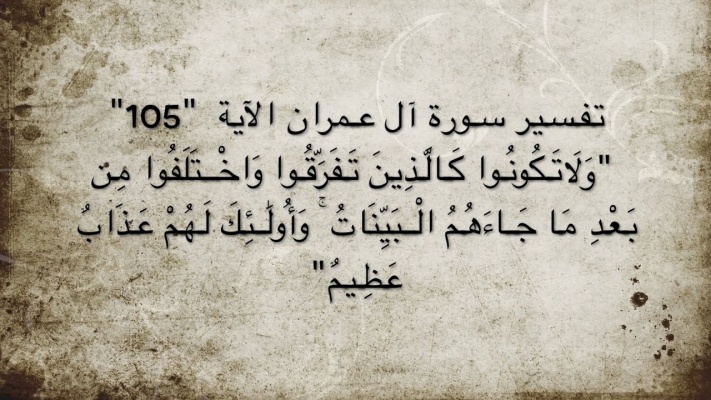 تفسير سورة آل عمران الآية "105"
"وَلَاتَكُونُوا كَالَّذِينَ تَفَرَّقُوا وَاخْتَلَفُوا مِن
بَعْدِ مَا جَاءَهُمُ الْبَيِّنَاتُ ۚ وَأُولَٰئِكَ لَهُمْ عَذَابٌ
عَظِيمٌ"